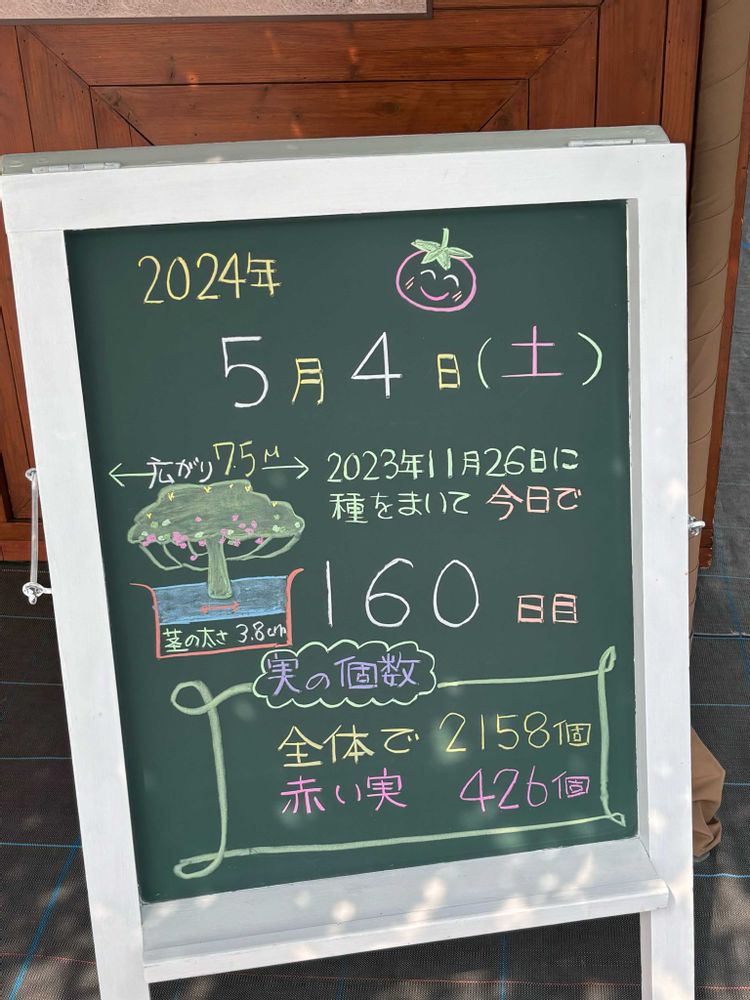 2024年
5月4日(土)
広がり7.5M
2023年11月26日に
種をまいて 今日で
160日目
茎の太さ 3.8cm
実の個数
全体で 2158個
赤い実 426個